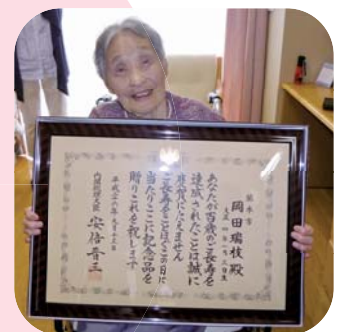 熊本市
岡田瑞枝殿
あなたが百歳のご長寿を
達成されたことは誠に
慶賀にたえません
ご長寿をことほぐこの日に
当たりここに記念品を
贈りこれを祝します
平成二十六年九月十五日
内閣総理大臣 安倍晋三